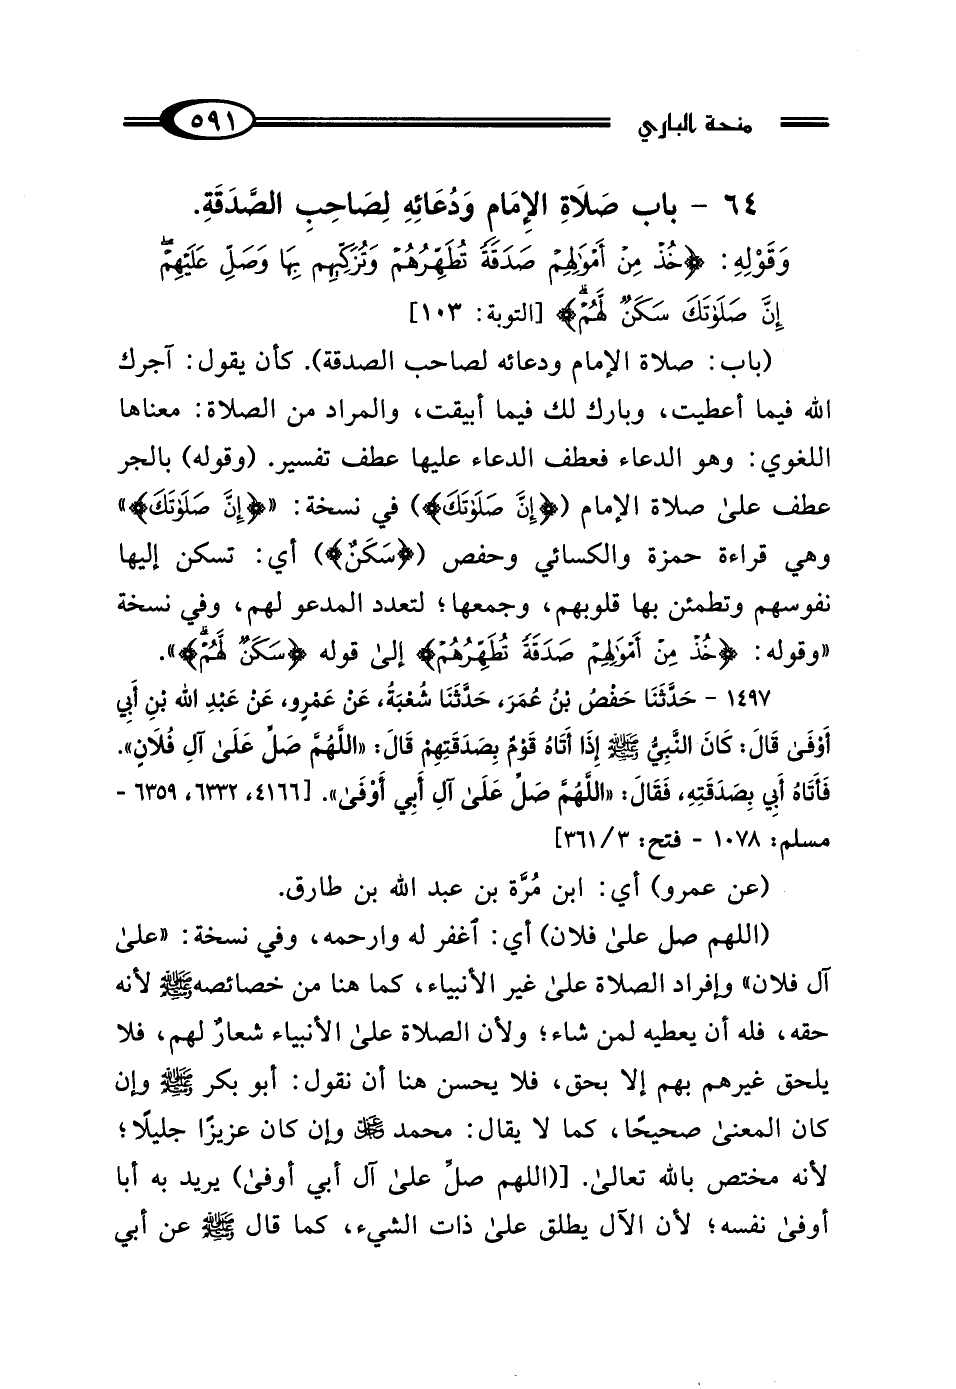 منحة الباري
٥٩١
٦٤ - باب صَلَاةِ الإِمَامِ وَدُعَائِهِ لِصَاحِبِ الصَّدَقَةِ.
وَقَوْلِهِ: ﴿خُذْ مِنْ أَمْوَٰلِهِمْ صَدَقَةٗ تُطَهِّرُهُمْ وَتُزَكِّيهِم بِهَا وَصَلِّ عَلَيْهِمْۖ
إِنَّ صَلَوٰتَكَ سَكَنٞ لَّهُمْۗ﴾ [التوبة: ١٠٣]
(باب: صلاة الإمام ودعائه لصاحب الصدقة). كأن يقول: آجرك
الله فيما أعطيت، وبارك لك فيما أبيقت، والمراد من الصلاة: معناها
اللغوي: وهو الدعاء فعطف الدعاء عليها عطف تفسير. (وقوله) بالجر
عطف علىٰ صلاة الإمام (﴿إِنَّ صَلَوٰتَكَ﴾) في نسخة: «﴿إِنَّ صَلَوٰتَكَ﴾»
وهي قراءة حمزة والكسائي وحفص (﴿سَكَنٌ﴾) أي: تسكن إليها
نفوسهم وتطمئن بها قلوبهم، وجمعها؛ لتعدد المدعو لهم، وفي نسخة
«وقوله: ﴿خُذْ مِنْ أَمْوَٰلِهِمْ صَدَقَةٗ تُطَهِّرُهُمْ﴾ إلىٰ قوله ﴿سَكَنٞ لَّهُمْۗ﴾».
١٤٩٧ - حَدَّثَنَا حَفْصُ بْنُ عُمَرَ، حَدَّثَنَا شُعْبَةُ، عَنْ عَمْرٍو، عَنْ عَبْدِ الله بْنِ أَبِي
أَوْفَىٰ قَالَ: كَانَ النَّبِيُّ ﷺ إِذَا أَتَاهُ قَوْمٌ بِصَدَقَتِهِمْ قَالَ: «اللَّهُمَّ صَلِّ عَلَىٰ آلِ فُلَانٍ».
فَأَتَاهُ أَبِي بِصَدَقَتِهِ، فَقَالَ: «اللَّهُمَّ صَلِّ عَلَىٰ آلِ أَبِي أَوْفَىٰ». [٤١٦٦، ٦٣٣٢، ٦٣٥٩ -
مسلم: ١٠٧٨ - فتح: ٣/ ٣٦١]
(عن عمرو) أي: ابن مُرَّة بن عبد الله بن طارق.
(اللهم صل علىٰ فلان) أي: ٱغفر له وارحمه، وفي نسخة: «علىٰ
آل فلان» وإفراد الصلاة علىٰ غير الأنبياء، كما هنا من خصائصه ﷺ لأنه
حقه، فله أن يعطيه لمن شاء؛ ولأن الصلاة علىٰ الأنبياء شعارٌ لهم، فلا
يلحق غيرهم بهم إلا بحق، فلا يحسن هنا أن نقول: أبو بكر ﷺ وإن
كان المعنىٰ صحيحًا، كما لا يقال: محمد ﷻ وإن كان عزيزًا جليلًا؛
لأنه مختص بالله تعالىٰ. [(اللهم صلِّ علىٰ آل أبي أوفىٰ) يريد به أبا
أوفىٰ نفسه؛ لأن الآل يطلق علىٰ ذات الشيء، كما قال ﷺ عن أبي